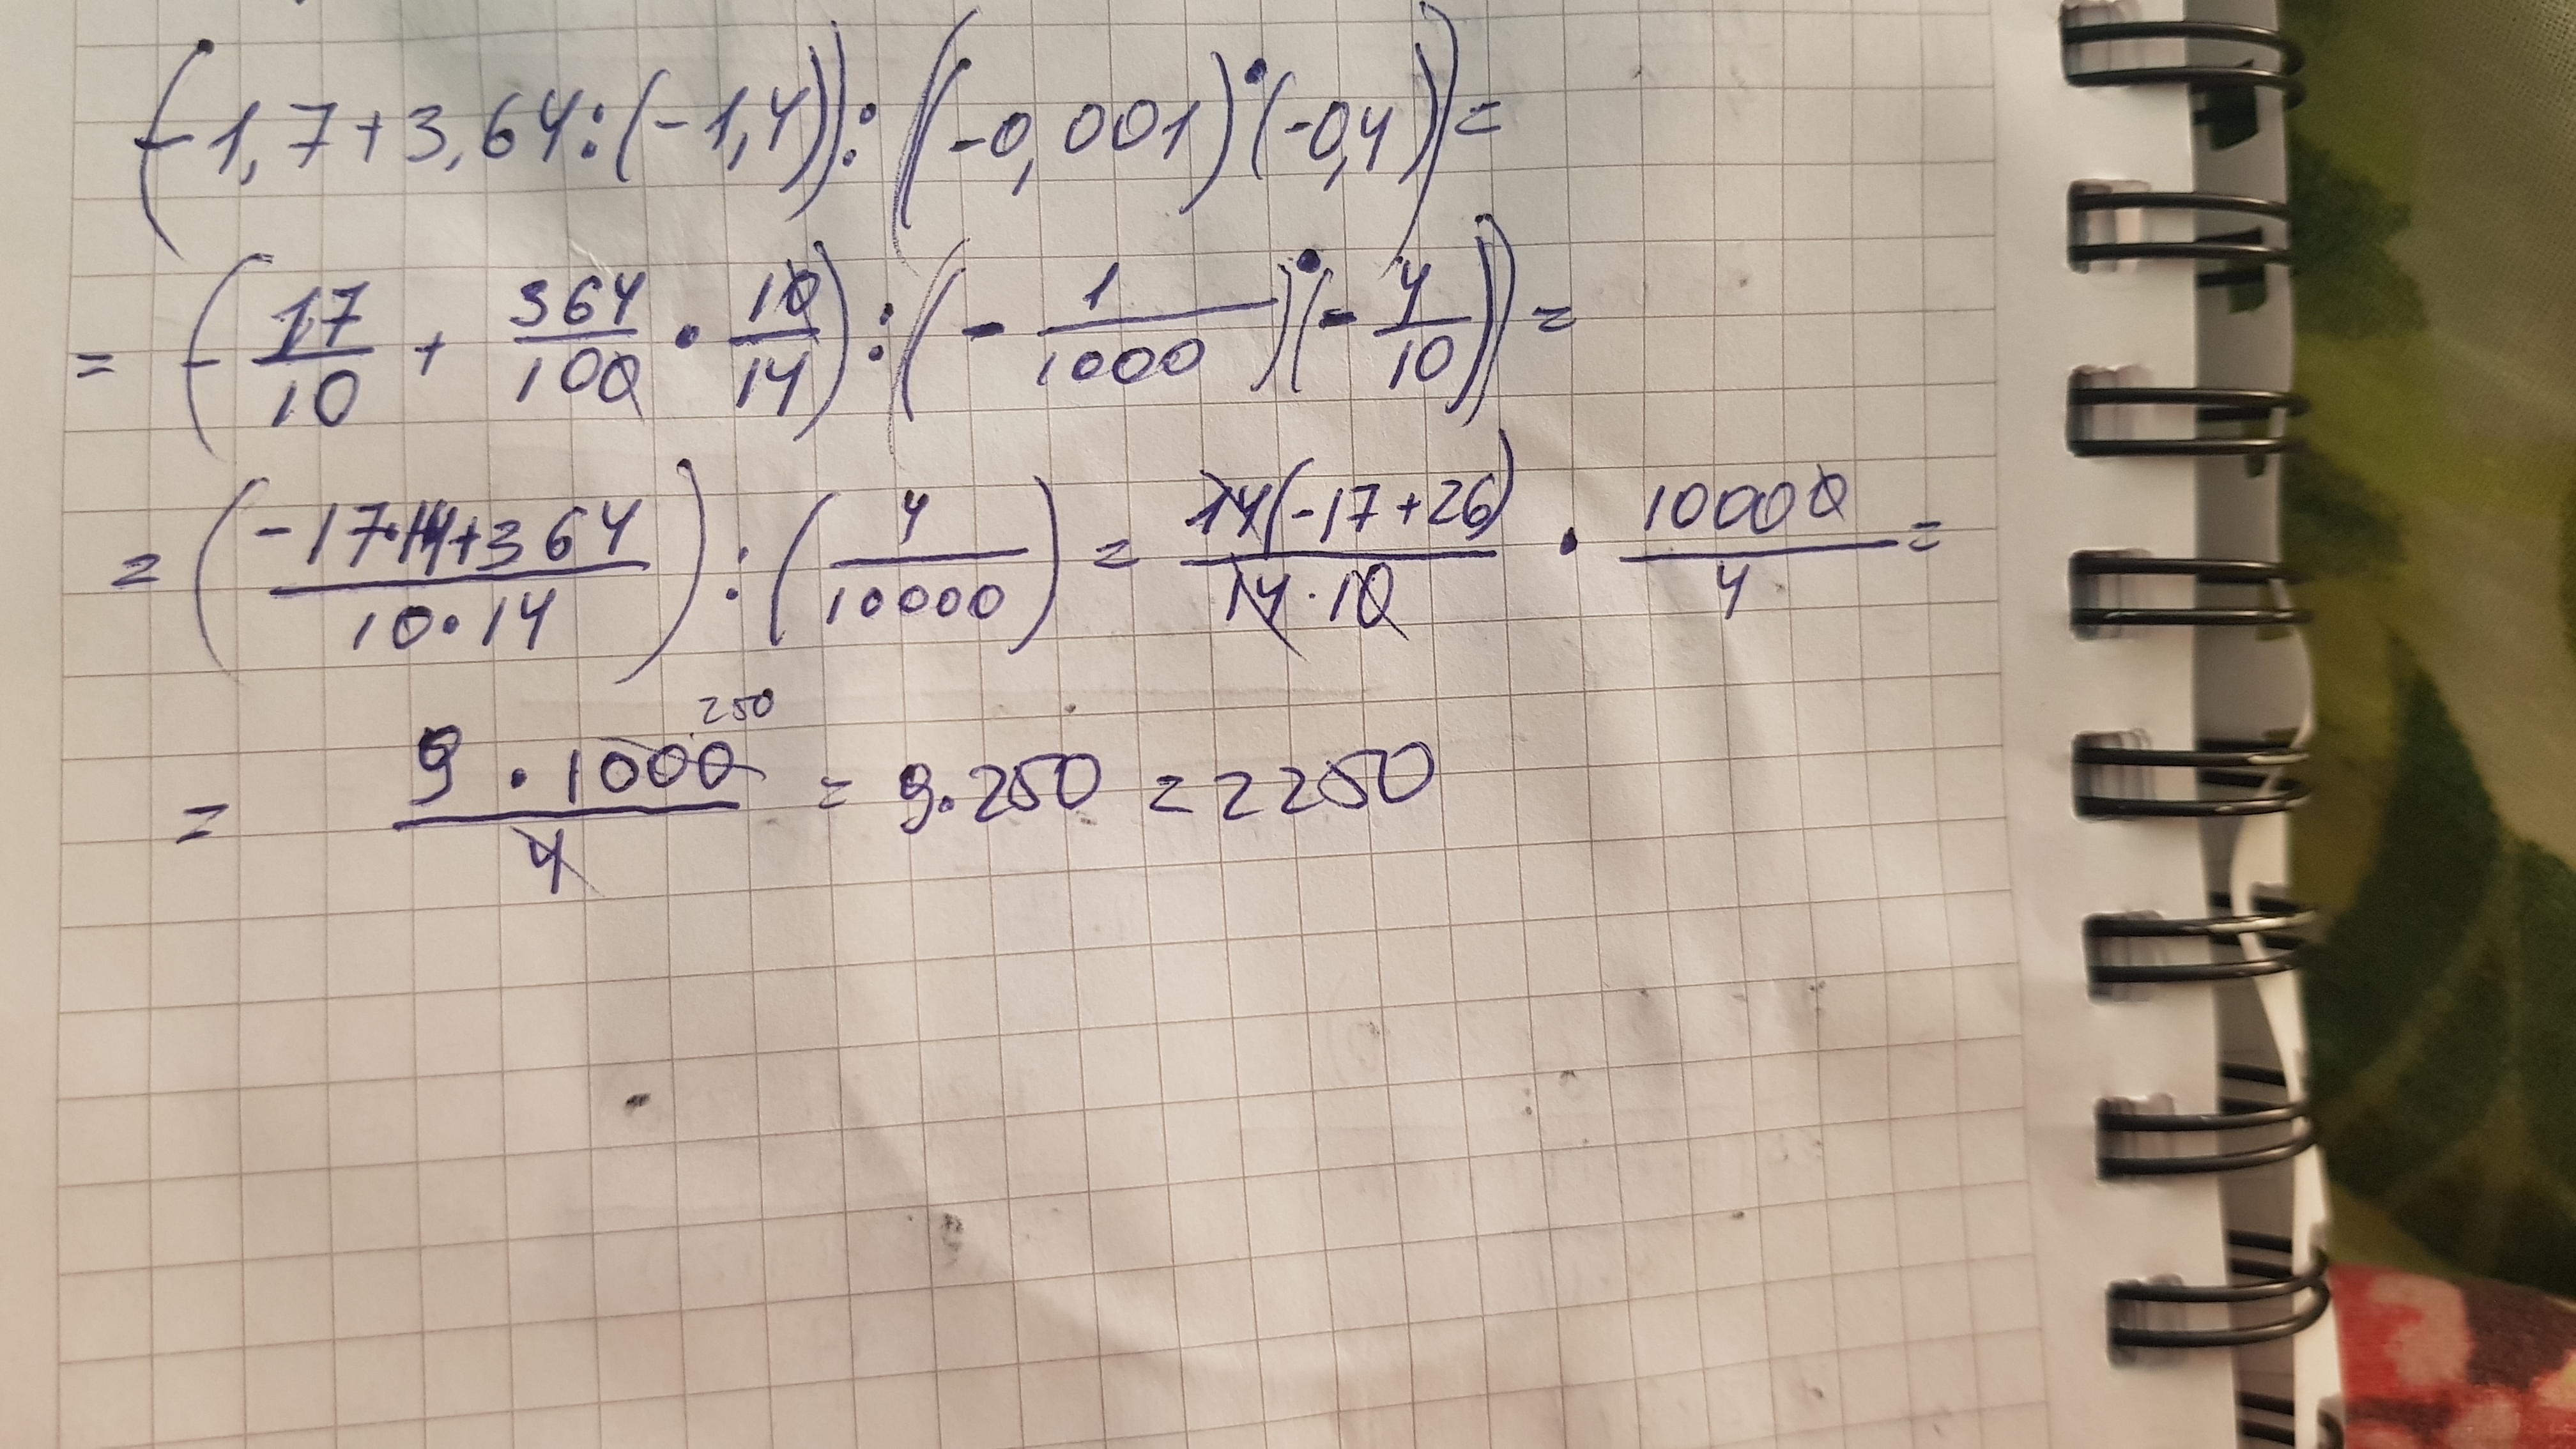 (-1,7+3,64:(-1,4)):((-0,001)·(-0,4))=
=(-17/10 + 364/100 · 10/14):(-1/1000)·(-4/10))=
=((-17·14+364)/(10·14)):(4/10000)=(14(-17+26))/(14·10) · 10000/4=
250
=(9·1000)/4=9·250=2250